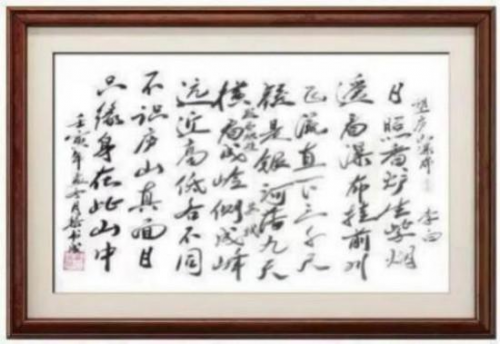 望庐山瀑布 李白
日照香炉生紫烟
遥看瀑布挂前川
飞流直下三千尺
疑是银河落九天
横看成岭侧成峰
远近高低各不同
不识庐山真面目
只缘身在此山中